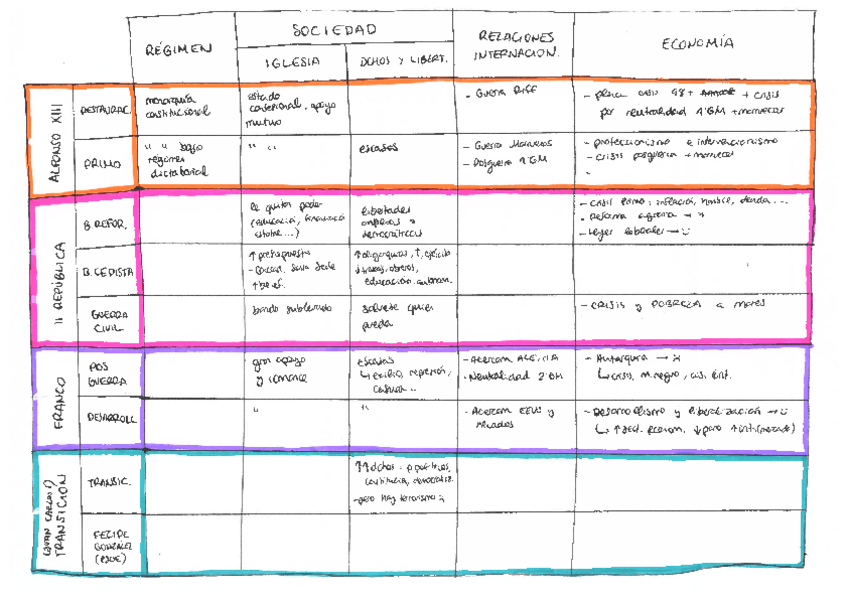 RÉGIMEN
SOCIEDAD
IGLESIA
DCHOS Y LIBERT.
RELACIONES
INTERNACION.
ECONOMÍA
ALFONSO XIII
RESTAURAC.
monarquía
constitucional
estado
confesional, apoyo
mutuo
- Guerra Riff
crisis 98 +
+ crisis
por neutralidad 1ªGM + marruecos
PRIMO
" " bajo
régimen
dictatorial
" "
escasos
- Guerra Marruecos
- Posguerra 1ªGM
- proteccionismo e intervencionismo
- crisis posguerra + marruecos
-
II REPÚBLICA
B. REFOR.
se quitan poder
(educación, financiación
estatal...)
libertades
amplias y
democráticas
- crisis Primo: inflación, hambre, deuda...
- Reforma agraria →
- Leyes laborales →
B. CEDISTA
↑ presupuesto
↑ oligarquías, ↑ ejército
obreros,
educación, autonom.
GUERRA
CIVIL
bando sublevado
sálvese quien
pueda
- CRISIS y POBREZA a mares
FRANCO
POS
GUERRA
gran apoyo
y
escasos
↳ exilio, represión,
censura...
- Acercam. ALE, ITA
- Neutralidad 2ªGM
- Autarquía →
↳ crisis, m. negro,
DESARROLL
"
"
- Acercam EEUU y
- Desarrollismo y liberalización →
↳ ↑ sect. econom, ↓ paro
(JUAN CARLOS I)
TRANSICIÓN
TRANSIC.
↑↑ dchos: p. políticos,
constitución, democracia
- pero hay terrorismo
FELIPE
GONZÁLEZ
(PSOE)